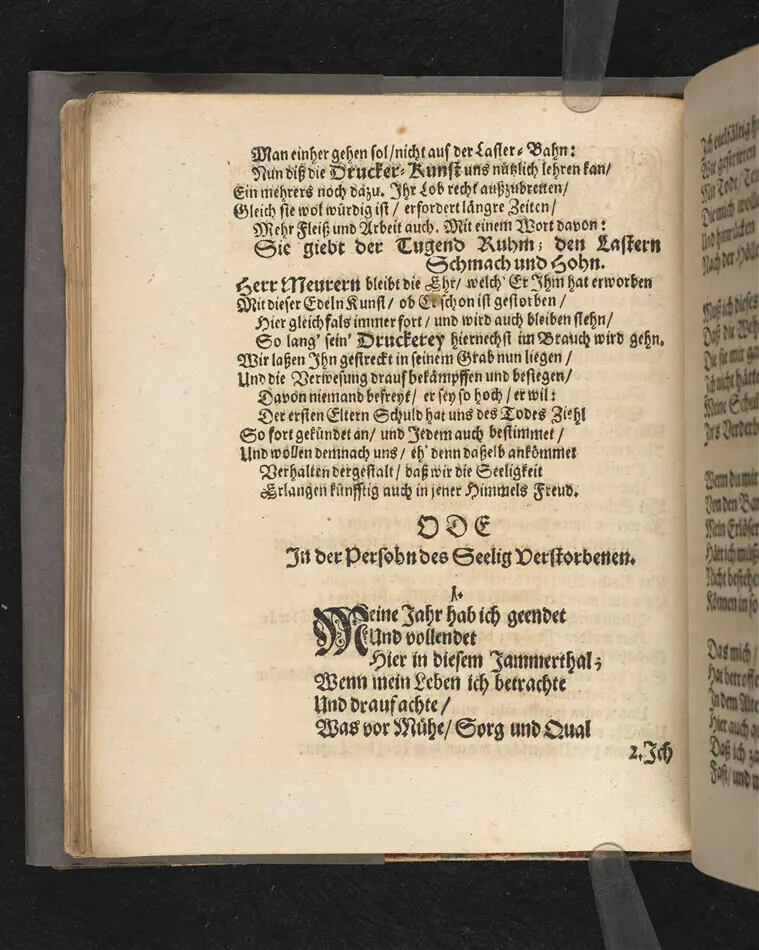 Man einher gehen sol/nicht auf der Laster-Bahn:
Nun diß die Drucker-Kunst uns nützlich lehren kan/
Ein mehrers noch dazu. Ihr Lob recht außzubreiten/
Gleich sie wol würdig ist/ erfordert längre Zeiten/
Mehr Fleiß und Arbeit auch. Mit einem Wort davon:
Sie giebt der Tugend Ruhm; den Lastern
Schmach und Hohn.
Herr Meurern bleibt die Ehr/ welch' Er Ihm hat erworben
Mit dieser Edeln Kunst/ ob Er schon ist gestorben/
Hier gleichfals immer fort/ und wird auch bleiben stehn/
So lang' sein' Druckerey hiernechst im Brauch wird gehn.
Wir laßen Ihn gestreckt in seinem Grab nun liegen/
Und die Verwesung drauf bekämpffen und besiegen/
Davon niemand befreyt/ er sey so hoch/ er wil:
Der ersten Eltern Schuld hat uns des Todes Ziehl
So fort gekündet an/ und Jedem auch bestimmet/
Und wollen demnach uns/ eh' denn daßelb ankömmet
Verhalten dergestalt/ daß wir die Seeligkeit
Erlangen künfftig auch in jener Himmels Freud.
ODE
In der Persohn des Seelig Verstorbenen.
1.
Meine Jahr hab ich geendet
Und vollendet
Hier in diesem Jammerthal;
Wenn mein Leben ich betrachte
Und drauf achte/
Was vor Mühe/ Sorg und Qual
2. Ich
Ich
Wir
Mit Tode/
Die mich
Und
Nach der
Muß ich dieses
Daß die
Die sie mir
Ich nicht
Meine
In's
Wenn du mir
Von den
Mein
Hätt ich
Nicht
Können in
Das mich/
Hat
In dem
Hier auch
Daß ich
Fast/ und